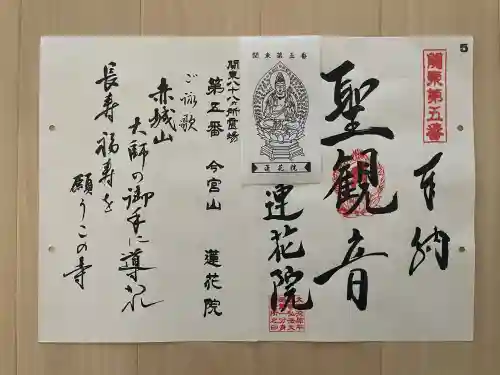 5
関東第五番
奉納
聖観音
蓮花院
関東第五番
蓮花院
関東八十八ヶ所霊場
第五番 今宮山 蓮花院
ご詠歌
赤城山
大師の御手に導かれ
長寿福寿を
願うこの寺